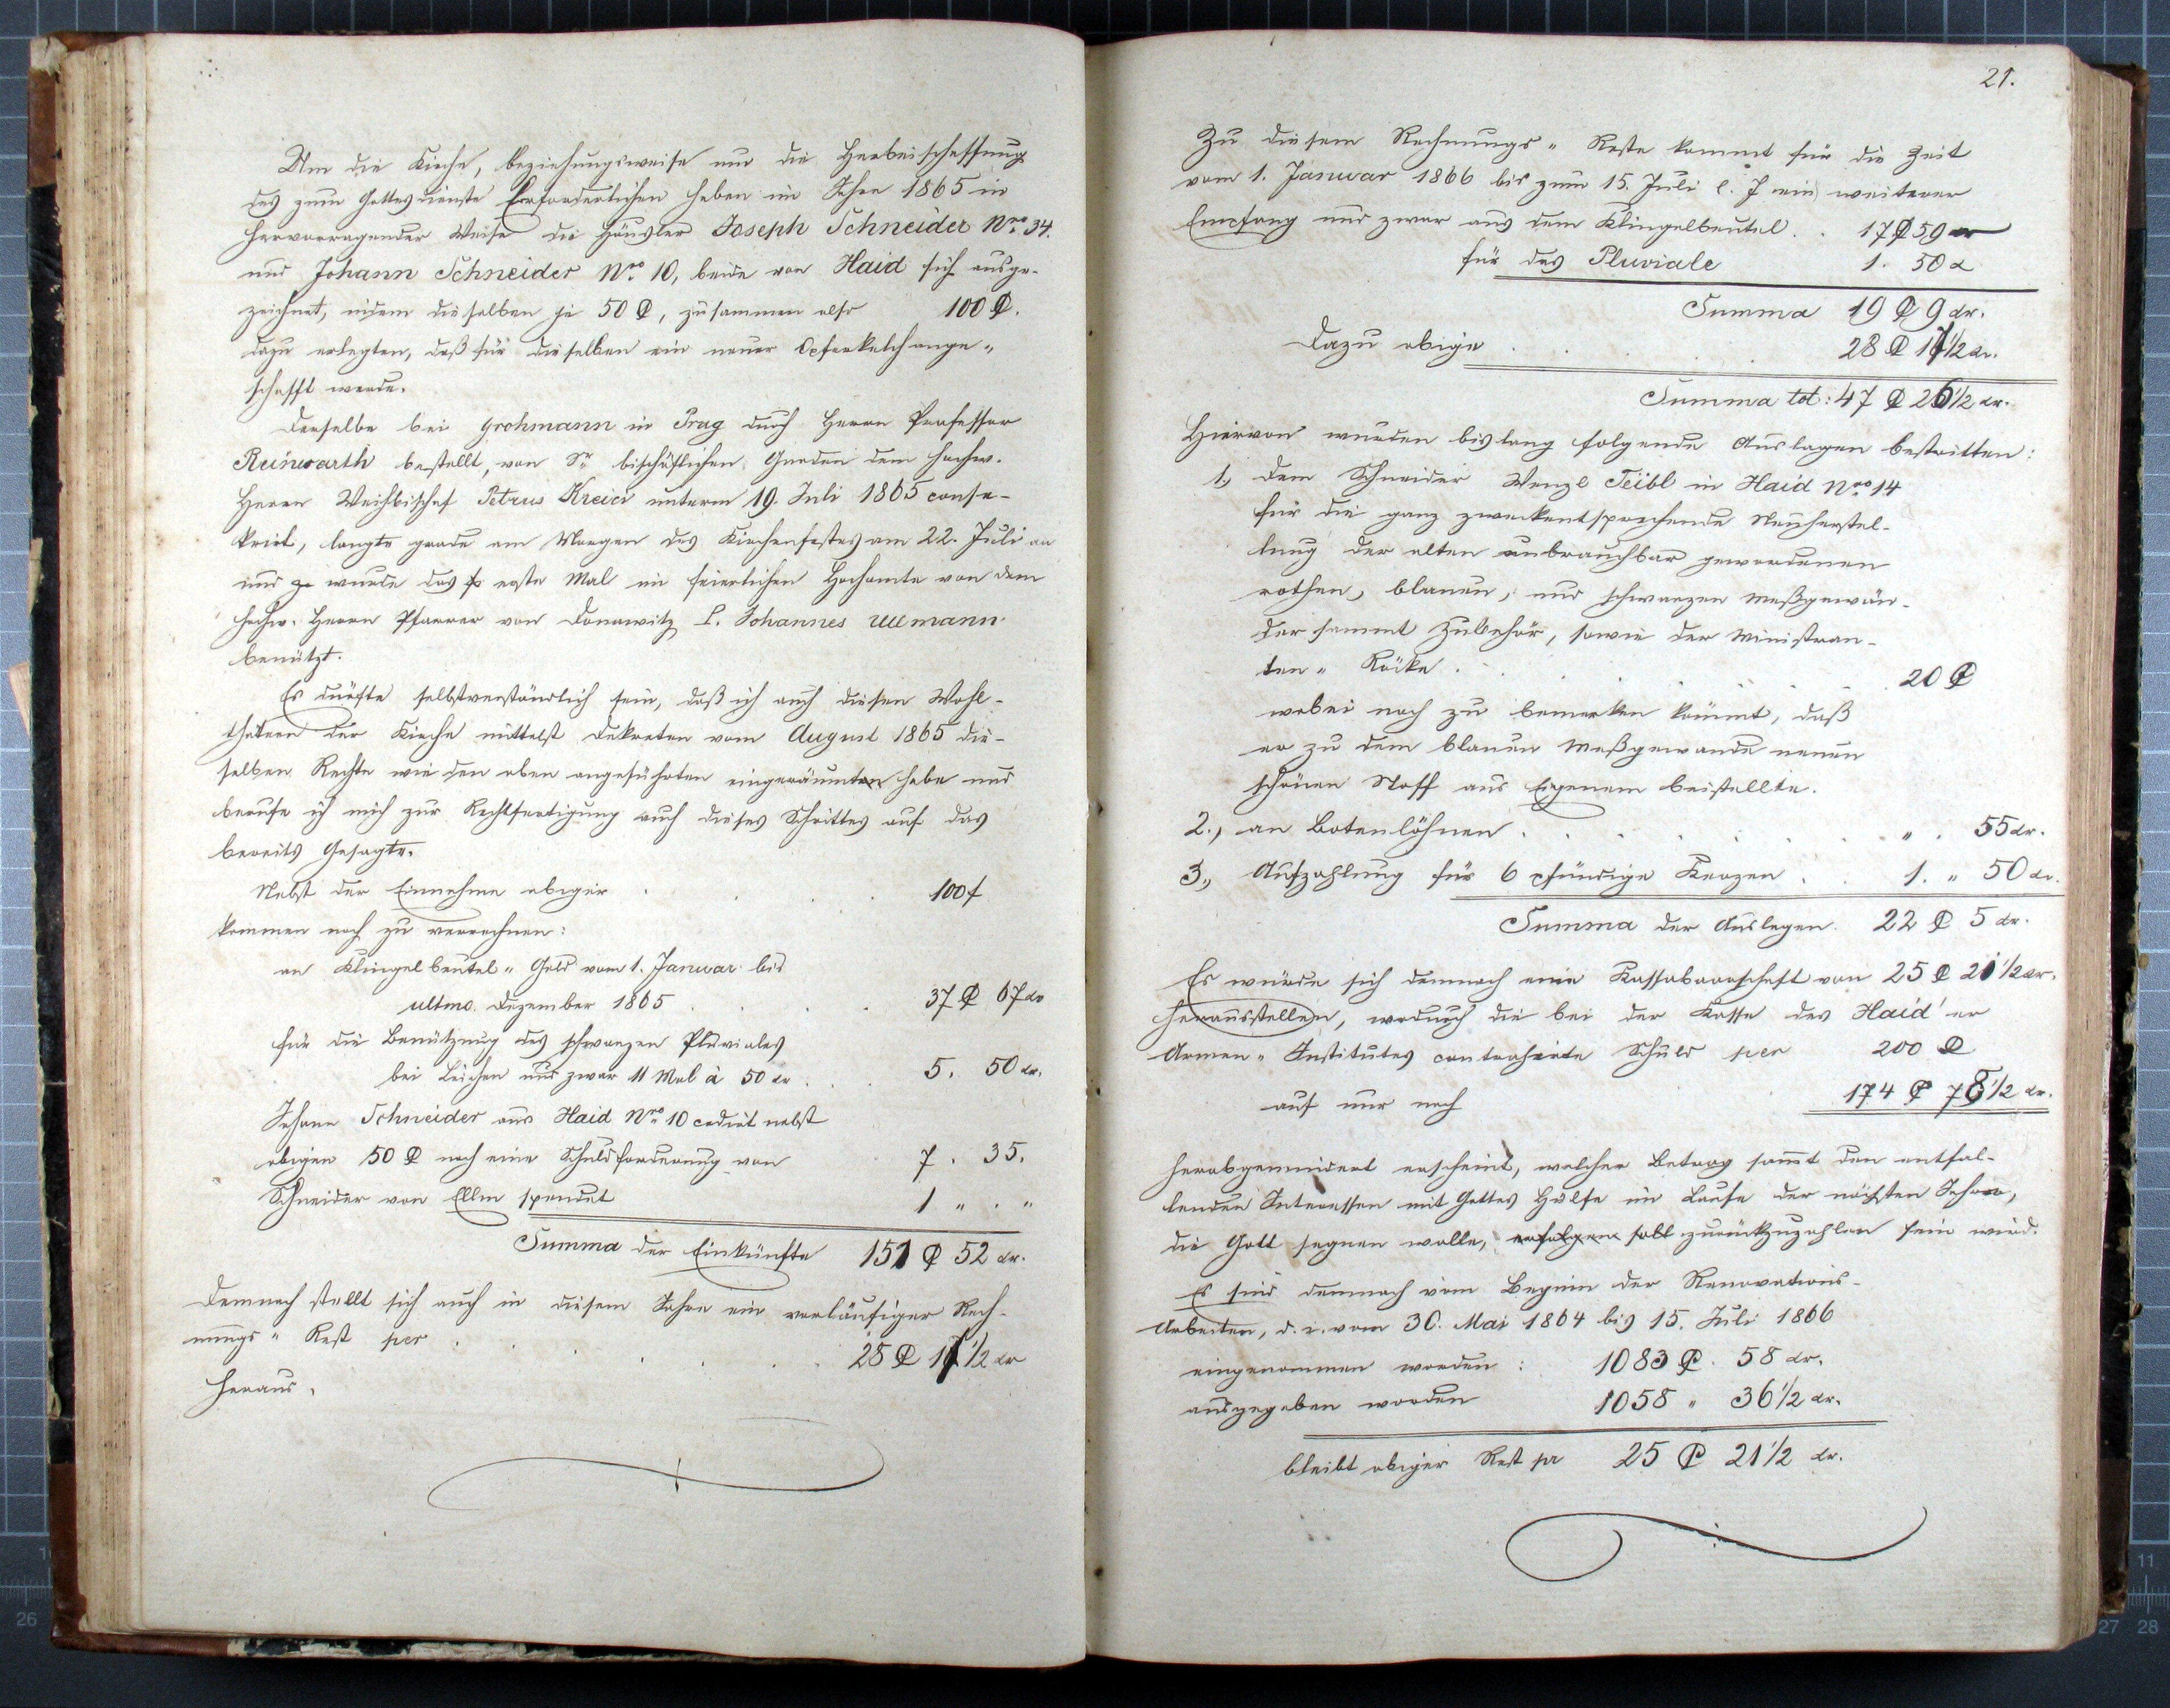 Um die Kirche, beziehungsweise um die Herbeischaffung
des zum Gottesdienste Erforderlichen haben im Jahre 1865 in
hervorragender Weise die Häusler Joseph Schneider Nro 34.
und Johann Schneider Nro 10, beide von Haid sich ausge-
zeichnet, indem dieselben je 50 fl, zusammen also 100 fl.
dazu erlegten, daß für dieselben ein neuer Opferkelch ange-
schafft werde.
Derselbe bei Grohmann in Prag durch Herrn Professor
Reinwarth bestellt, von Sr bischöflichen Gnaden dem hochw.
Herrn Weihbischof Petrus Kreici unterm 19. Juli 1865 conse-
krirt, langte grade am Morgen des Kirchenfestes am 22. Juli an
und wurde das erste Mal im feierlichen Hochamte von dem
hochw. Herrn Pfarrer von Donawitz P. Johannes Ullmann
benützt.
Es dürfte selbstverständlich sein, daß ich auch diesen Wohl-
thätern der Kirche mittelst Dekreten vom August 1865 die-
selben Rechte wie den oben angeführten eingeräumt habe und
berufe ich mich zur Rechtfertigung auch dieses Schrittes auf das
bereits Gesagte.
Nebst der Einnahme obiger . . . . 100 f
kommen noch zu verrechnen:
an Klingelbeutel " Geld vom 1. Januar bis
ultmo. Dezember 1865 . . . 37 fl 67 kr
für die Benützung des schwarzen Pluviales
bei Leichen und zwar 11 Mal à 50 kr . . . 5. 50 kr.
Johann Schneider aus Haid Nro 10 cedirt nebst
obigen 50 fl noch eine Schuldforderung von 7. 35.
Schneider von Ellm spendet 1 " . "
Summa der Einkünfte 151 fl 52 kr.
Demnach stellt sich auch in diesem Jahre ein vorläufiger Rech-
nungs " Rest per . . . . . 28 fl 17 1/2 kr
heraus.
21.
Zu diesem Rechnungs " Reste kommt für die Zeit
vom 1. Januar 1866 bis zum 15. Juli l. J ein weiterer
Empfang und zwar aus dem Klingelbeutel . . 17 fl 59 kr
für das Pluviale 1. 50 kr
Summa 19 fl 9 kr.
Dazu obige . . . . 28 fl 17 1/2 kr.
Summa tot: 47 fl 26 1/2 kr.
Hiervon wurden bislang folgende Auslagen bestritten:
1., dem Schneider Wenzl Teibl in Haid Nro 14
für die ganz zweckentsprechende Neuherstel-
lung der alten unbrauchbar gewordenen
rothen, blauen, und schwarzen Meßgewän-
der sammt Zubehör, sowie der Ministran-
ten " Röcke . . . . . . 20 fl
wobei noch zu bemerken kömmt, daß
er zu dem blauen Meßgewande neuen
schönen Stoff aus Eigenem beistellte.
2., an Botenlöhnen . . . . . " . 55 kr.
3., Aufzahlung für 6 pfündige Kerzen . . 1. " 50 kr.
Summa der Auslagen. 22 fl 5 kr.
Es würde sich demnach eine Kassabaarschaft von 25 fl 21 1/2 kr.
herausstellen, wodurch die bei der Kasse des Haid'er
Armen " Institutes contrahirte Schuld per 200 fl
auf nur noch 174 fl 78 1/2 kr.
herabgemindert erscheint, welcher Betrag sammt den entfal-
lenden Interessen mit Gottes Hülfe im Laufe der nächsten Jahre,
die Gott segnen wolle, erfolgen soll zurückzuzahlen sein wird.
Es sind demnach vom Beginn der Renovations-
Arbeiten, d. i. vom 30. Mai 1864 bis 15. Juli 1866
eingenommen worden: 1083 fl. 58 kr.
ausgegeben worden 1058 " 36 1/2 kr.
bleibt obiger Rest pr 25 fl 21 1/2 kr.